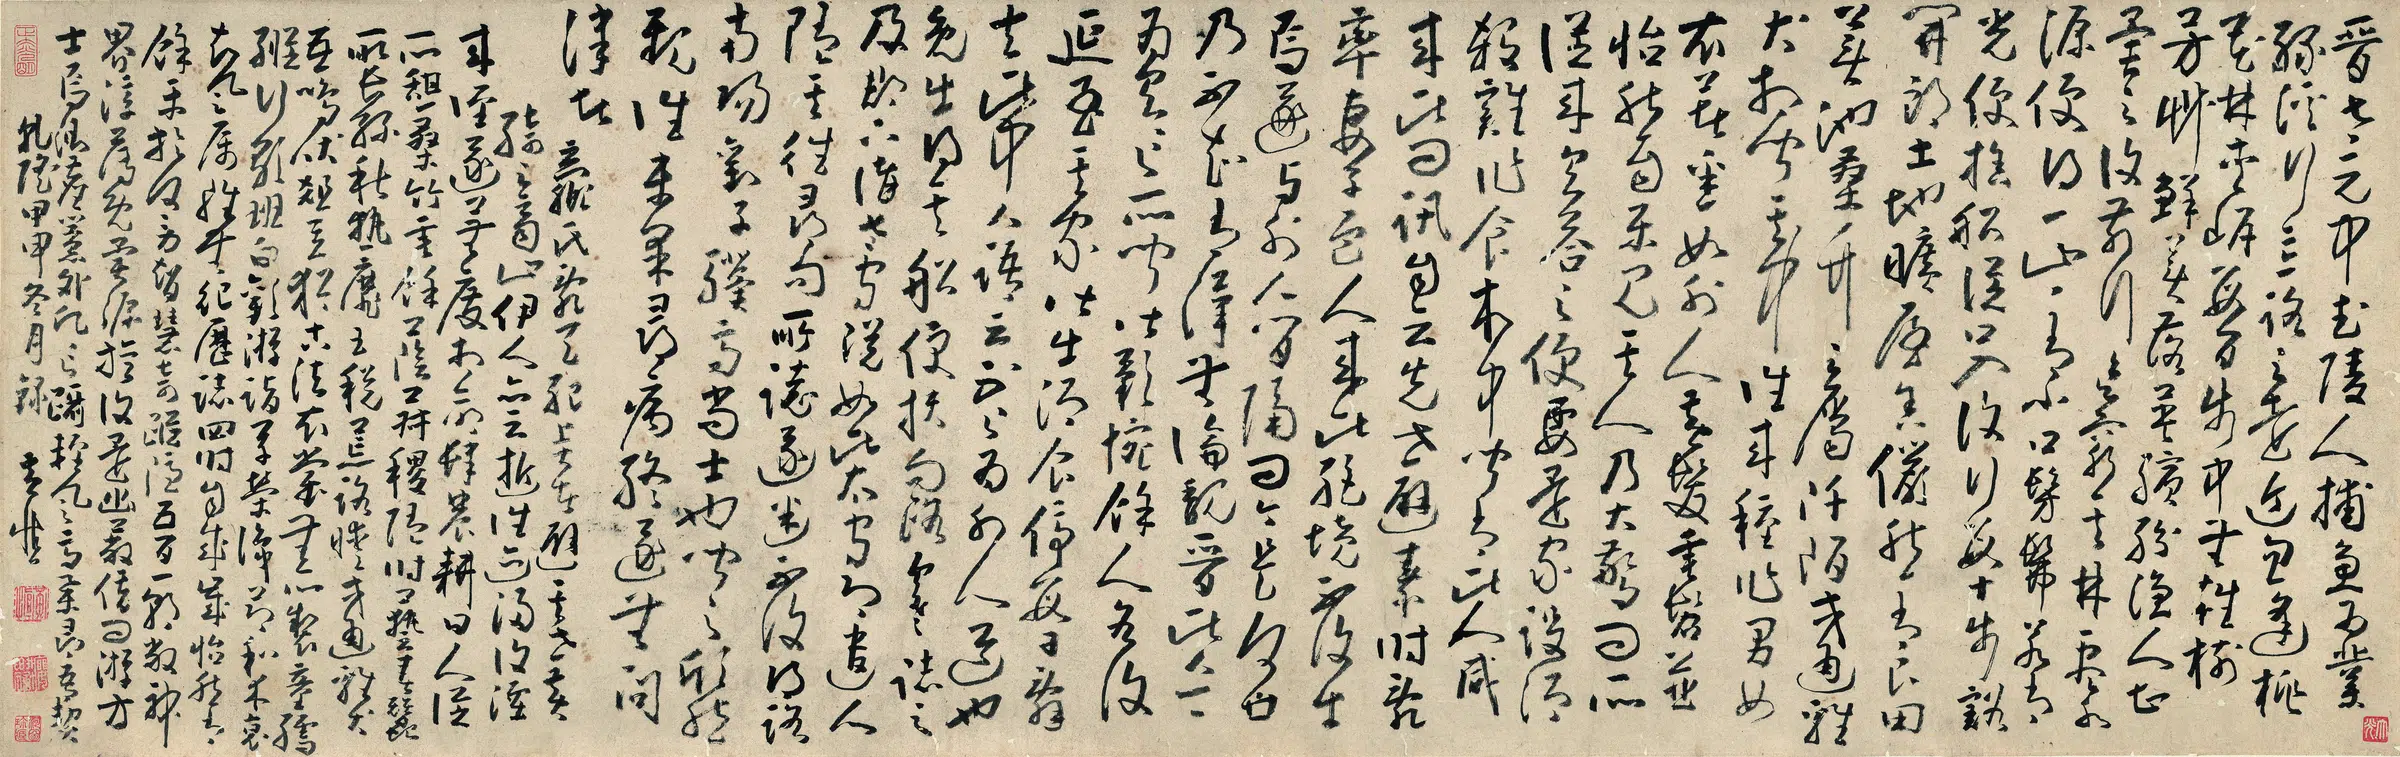 晉太元中武陵人捕魚為業
緣溪行忘路之遠近忽逢桃
花林夾岸數百步中無雜樹
芳草鮮美落英繽紛漁人甚
異之復前行欲窮其林林盡水
源便得一山山有小口髣髴若有
光便捨船從口入復行數十步豁
開朗土地曠屋舍儼然有良田
美池桑竹之屬阡陌交通雞
犬相聞其中往來種作男女
衣著悉如外人黃髮垂髫並
怡然自樂見其人乃大驚問所
從來具答之便要還家設酒
殺雞作食村中聞有此人咸
來此問訊自云先世避秦時亂
率妻子邑人來此絕境不復出
焉遂與外人間隔問今是何世
乃不知有漢無論魏晉此人一一
為具言所聞皆歎惋餘人各復
延至其家皆出酒食停數日辭
去此中人語云不足為外人道也
既出得其船便扶向路處處誌之
及郡下詣太守說如此太守即遣人
隨其往尋向所誌遂迷不復得路
南陽劉子驥高尚士也聞之欣然
親往未果尋病終遂無問
津者
嬴氏亂天紀賢者避其世黃
綺之商山伊人亦云逝往迹浸復湮
來逕遂蕪廢相命肆農耕日入從
所憩桑竹垂餘蔭菽稷隨時藝春蠶
收長絲秋熟靡王稅荒路曖交通雞犬
互鳴吠俎豆猶古法衣裳無新製童孺
縱行歌班白歡游詣草榮識節和木衰
知風厲雖無紀歷誌四時自成歲怡然有
餘樂於何勞智慧奇蹤隱五百一朝敞神
界淳薄既異源旋復還幽蔽借問游方
士焉測塵囂外願言躡輕風高舉尋吾契
乾隆甲申冬月錄